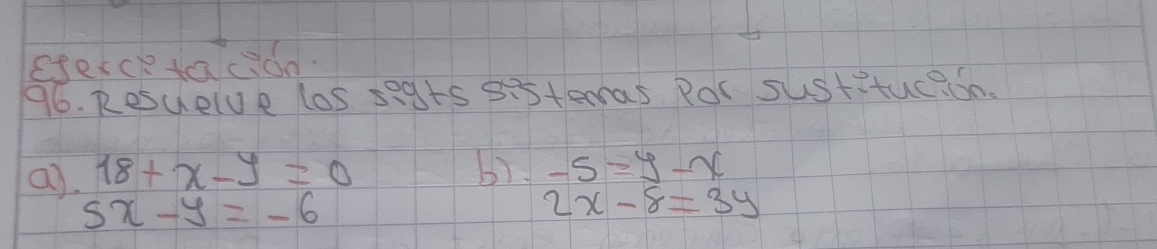 Ejercitación.
96. Resuelve los sigts sistemas por sustitución.
a). 18 + x - y = 0 b). -5 = y - x
5x - y = -6 2x - 8 = 3y